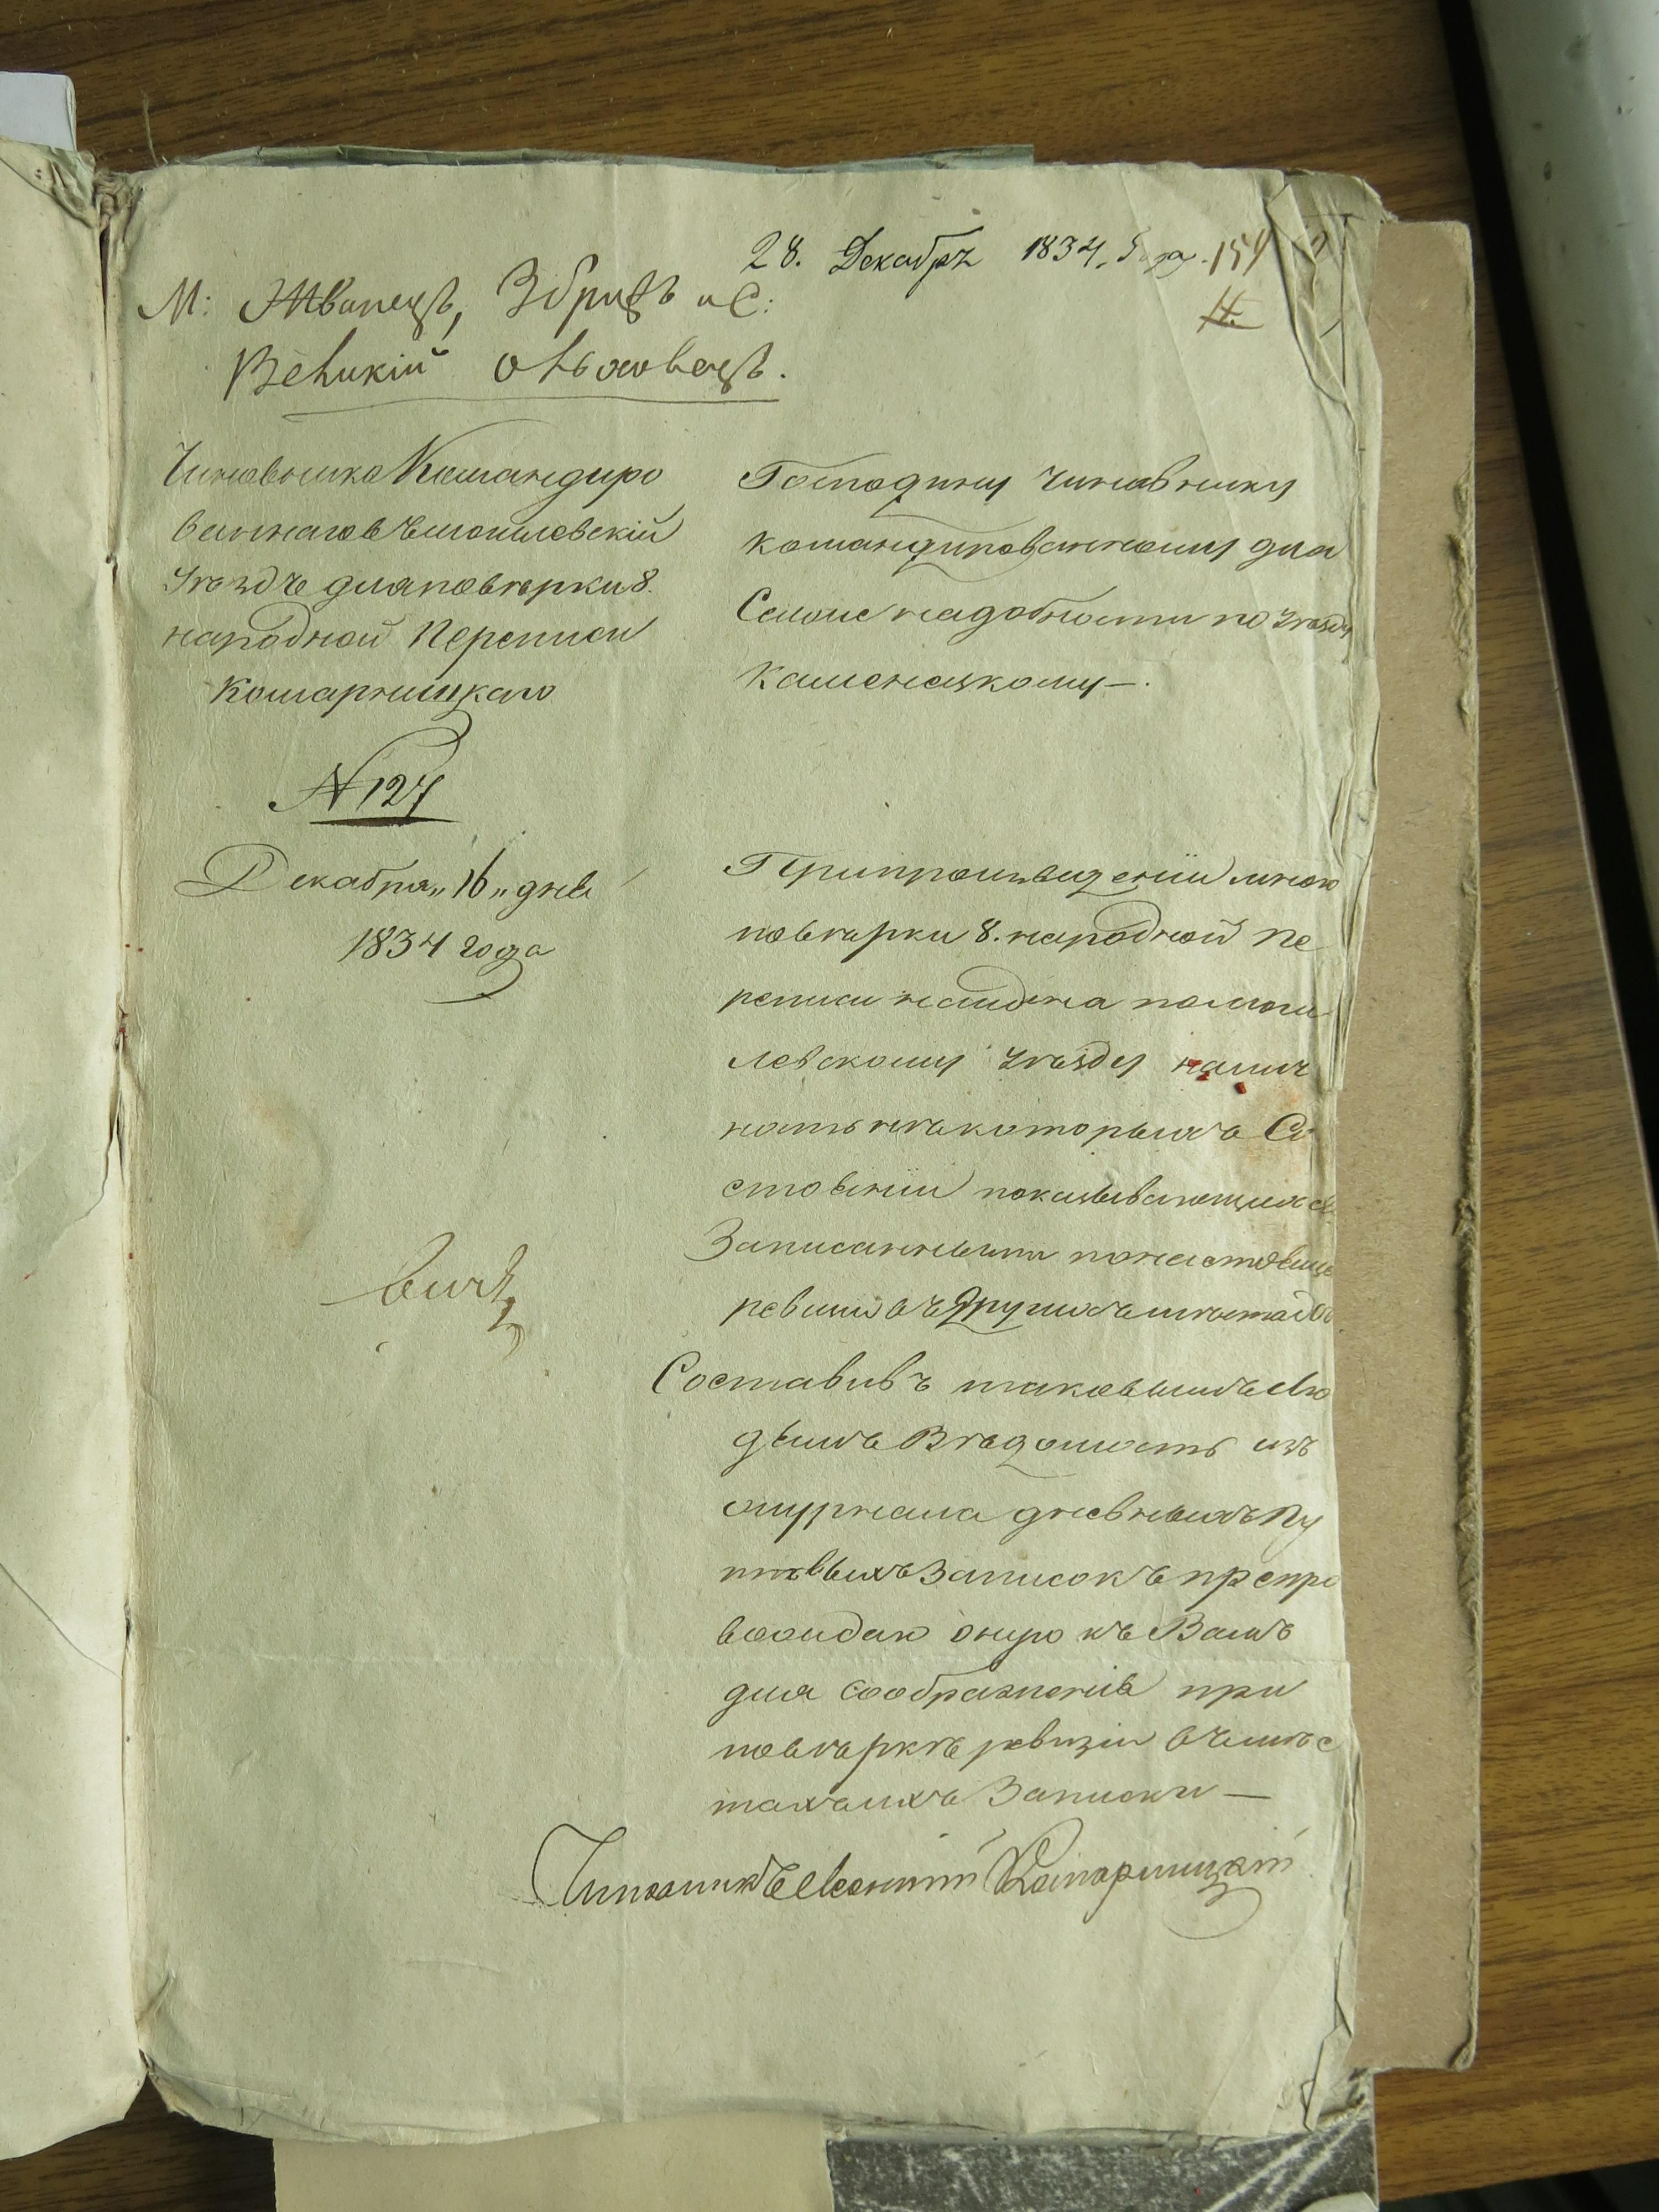 28. Декабря 1834. Года. 154
М: Жванецъ, Збрижъ и С:
Великій Ольховецъ.
Чиновника Командиро
ваннаго въ Могилевскій
Уѣздъ для повѣрки 8.
народной Переписи
Комарницкаго
N 127
Декабря „16„ дня
1834 года
Господину Чиновнику
командированному для
Самое надобности по Уѣзду
Каменецкому —.
При произведеніи мною
повѣрки 8. народной пе
реписи найдена по Моги
левскому Уѣзду налич
ность нѣкоторыхъ Со
стояніи показывающихся
Записанными по настояще
ревизіи въ Другихъ мѣстахъ
Составивъ таковымъ Лю
дямъ Вѣдомость изъ
журнала дневныхъ Пу
тевыхъ Записокъ препро
вождаю оную къ Вамъ
для Соображенія при
повѣркѣ ревизіи въ мѣс
тахъ ихъ Записки —
Чиновникъ Комарницкій